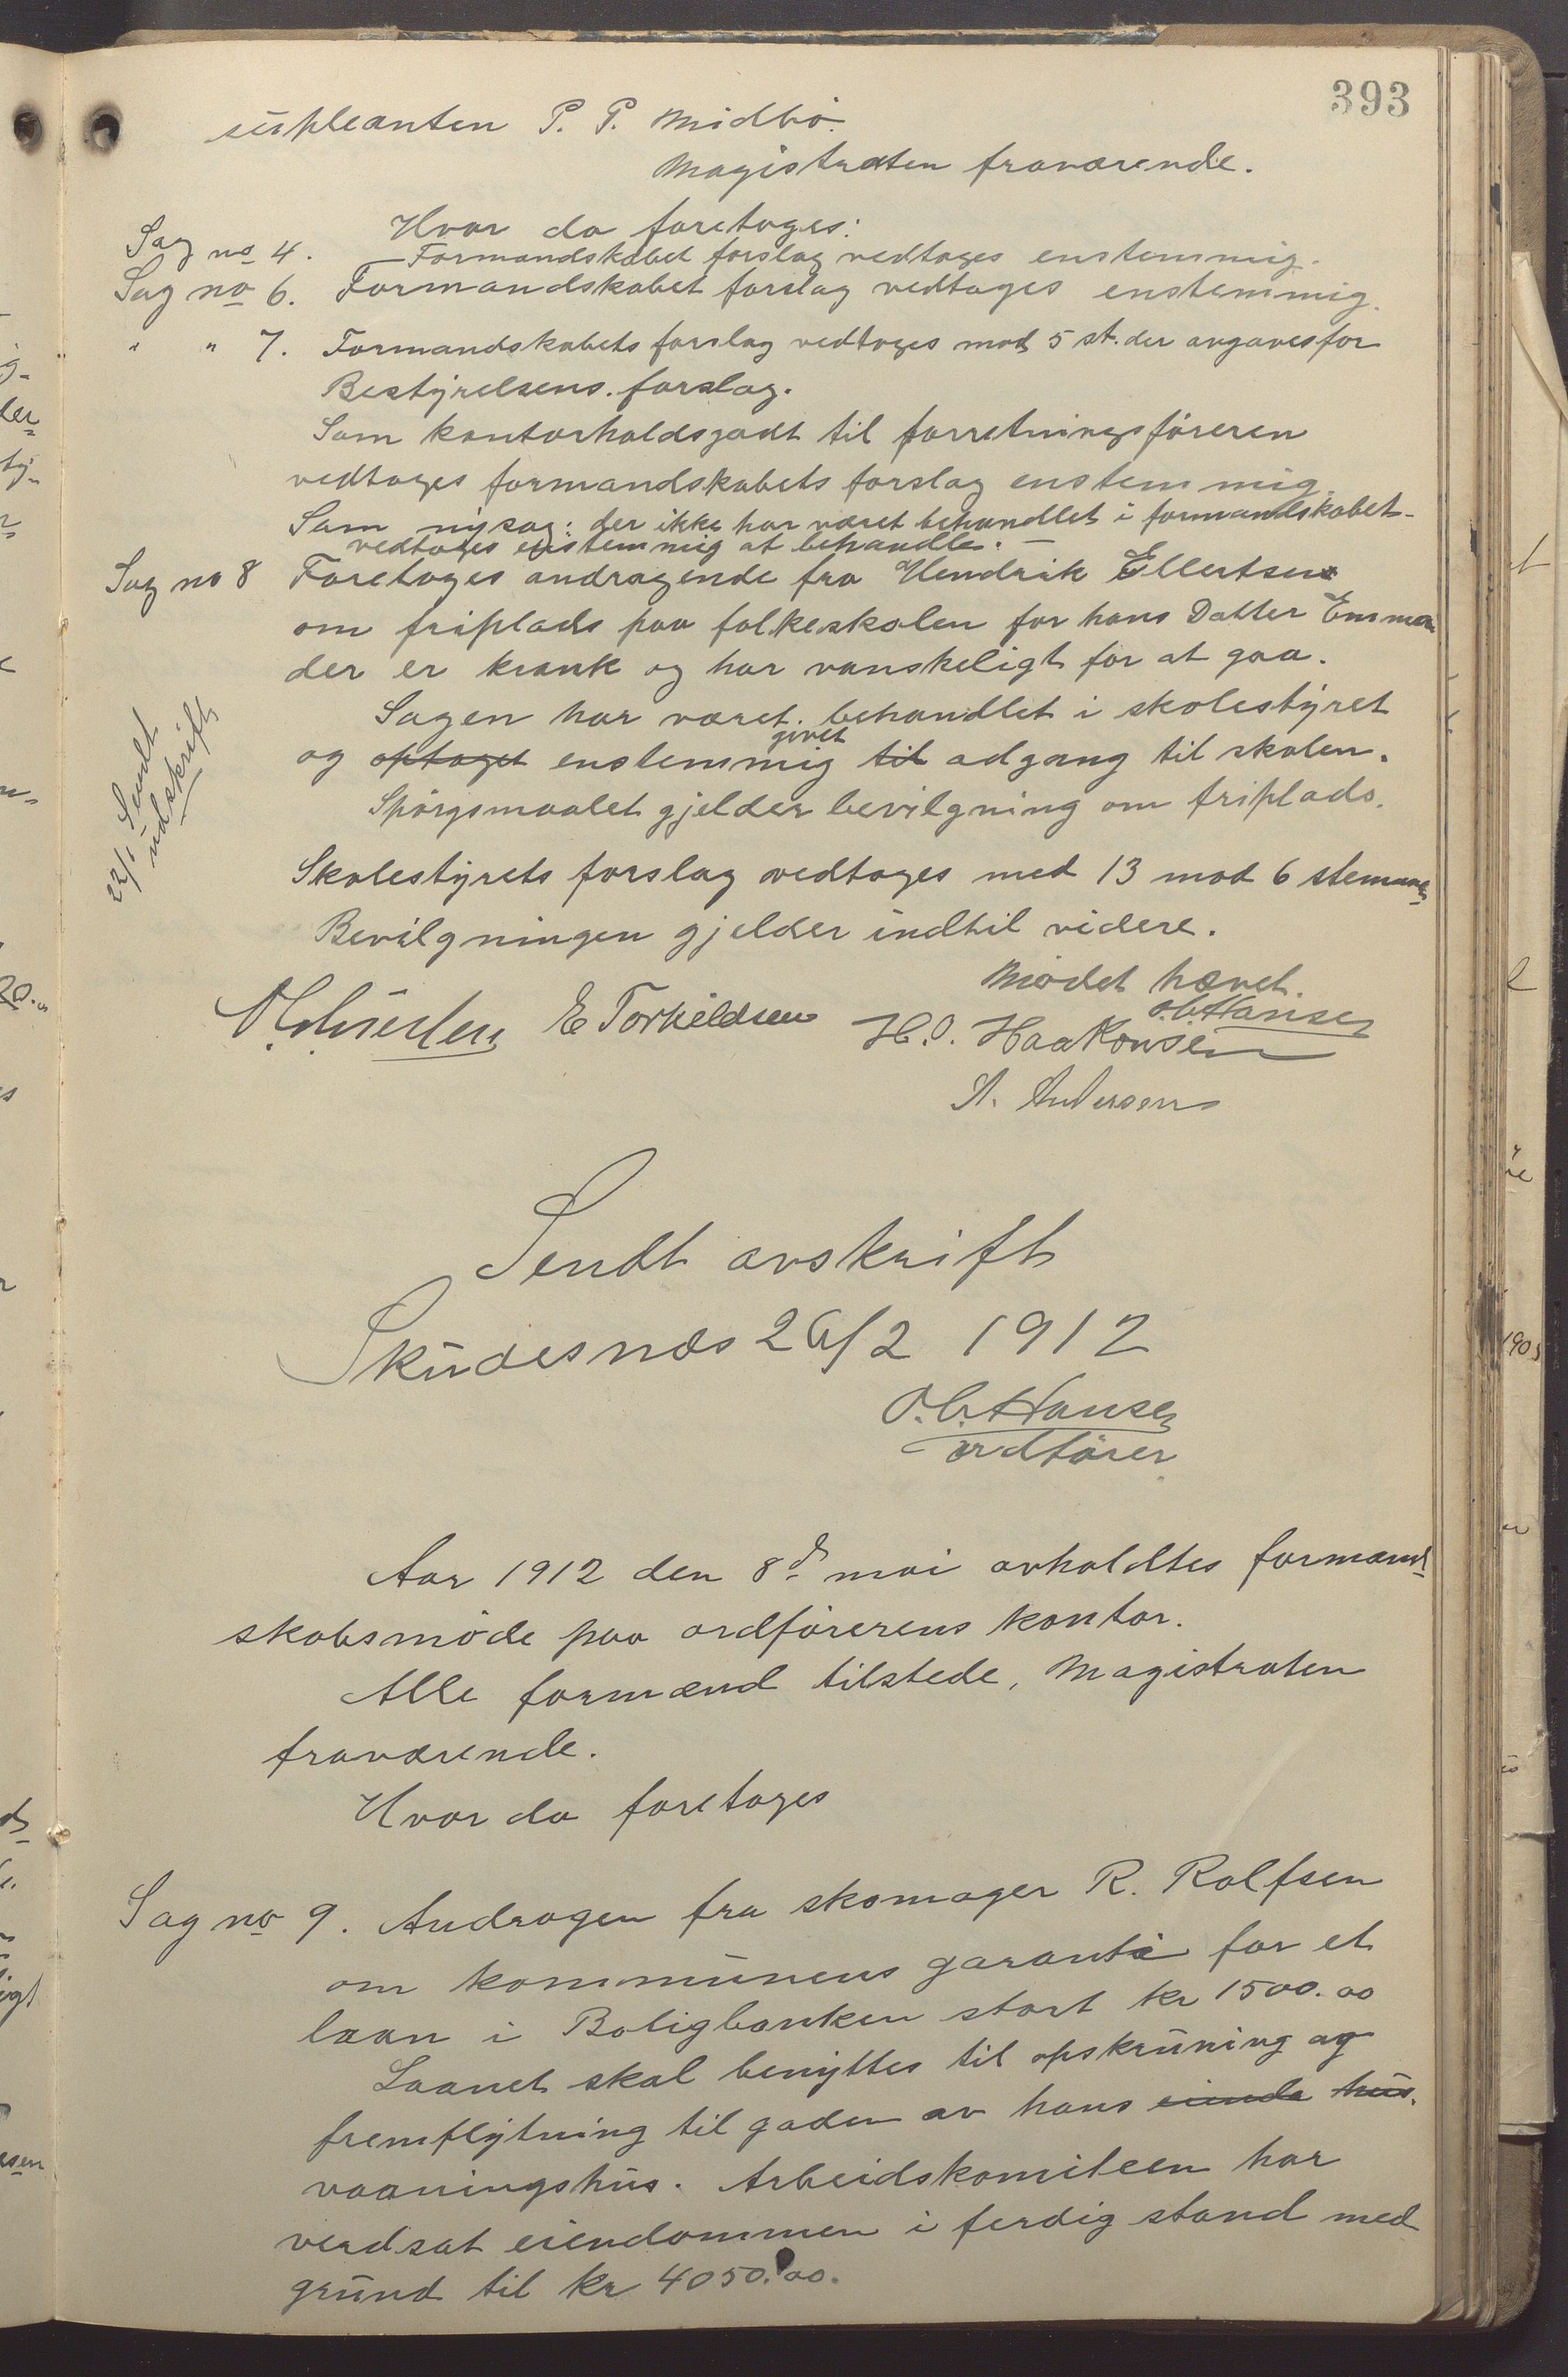 393
supleanten P. P. Midbö.
Magistraten fraværende.
Hvor da foretoges:
Sag no 4. Formandskabet forslag vedtoges enstemmig.
Sag no 6. Formandskabet forslag vedtoges enstemmig.
" " 7. Formandskabets forslag vedtoges mod 5 st. der avgaves for
Bestyrelsens forslag.
Som kontorholdsgodt til forretningsföreren
vedtoges formandskabets forslag enstemmig.
Som ny sag: der ikke har været behandlet i formandskabet-
vedtoges enstemmig at behandle. —
Sag no 8 Foretoges andragende fra Hendrik Ellertsen
om friplads paa folkeskolen for hans Datter Emma
der er krank og har vanskeligt for at gaa.
Sagen har været behandlet i skolestyret
og optaget enstemmig givet til adgang til skolen.
Spörgsmaalet gjelder bevilgning om friplads.
22/1 Sendt
udskrift
Skolestyrets forslag vedtoges med 13 mod 6 stemmer
Bevilgningen gjelder indtil videre.
Mödet hævet.
O. C. Hansen
E Torkildsen H. O. Haakonsen
A. Andersen
Sendt avskrift
Skudesnæs 26/2 1912
O. C. Hansen
ordförer
Aar 1912 den 8d mai avholdtes formand-
skabsmöde paa ordförerens kontor.
Alle formænd tilstede, Magistraten
fraværende.
Hvor da foretoges
Sag no 9. Andragen fra skomager R. Rolfsen
om kommunens garanti for et
laan i Boligbanken stort kr 1500.00
Laanet skal benyttes til opskruning og
fremflytning til gaden av hans eiende hus.
vaaningshus. Arbeidskomiteen har
verdsat eiendommen i ferdig stand med
grund til kr 4050.00.